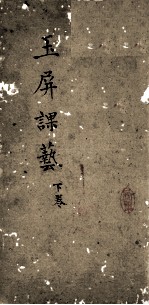 玉屏課藝
下卷